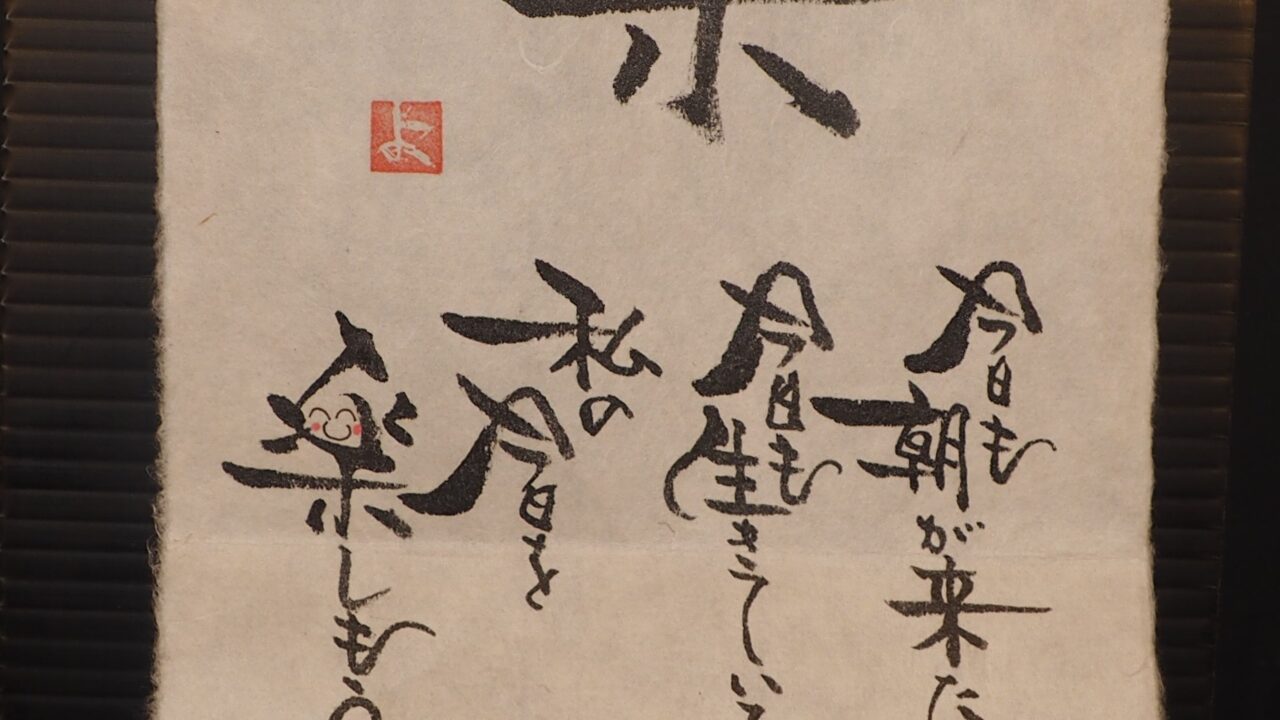 今日も朝が来た
今日も生きている
私の今日を
楽しもう
よ